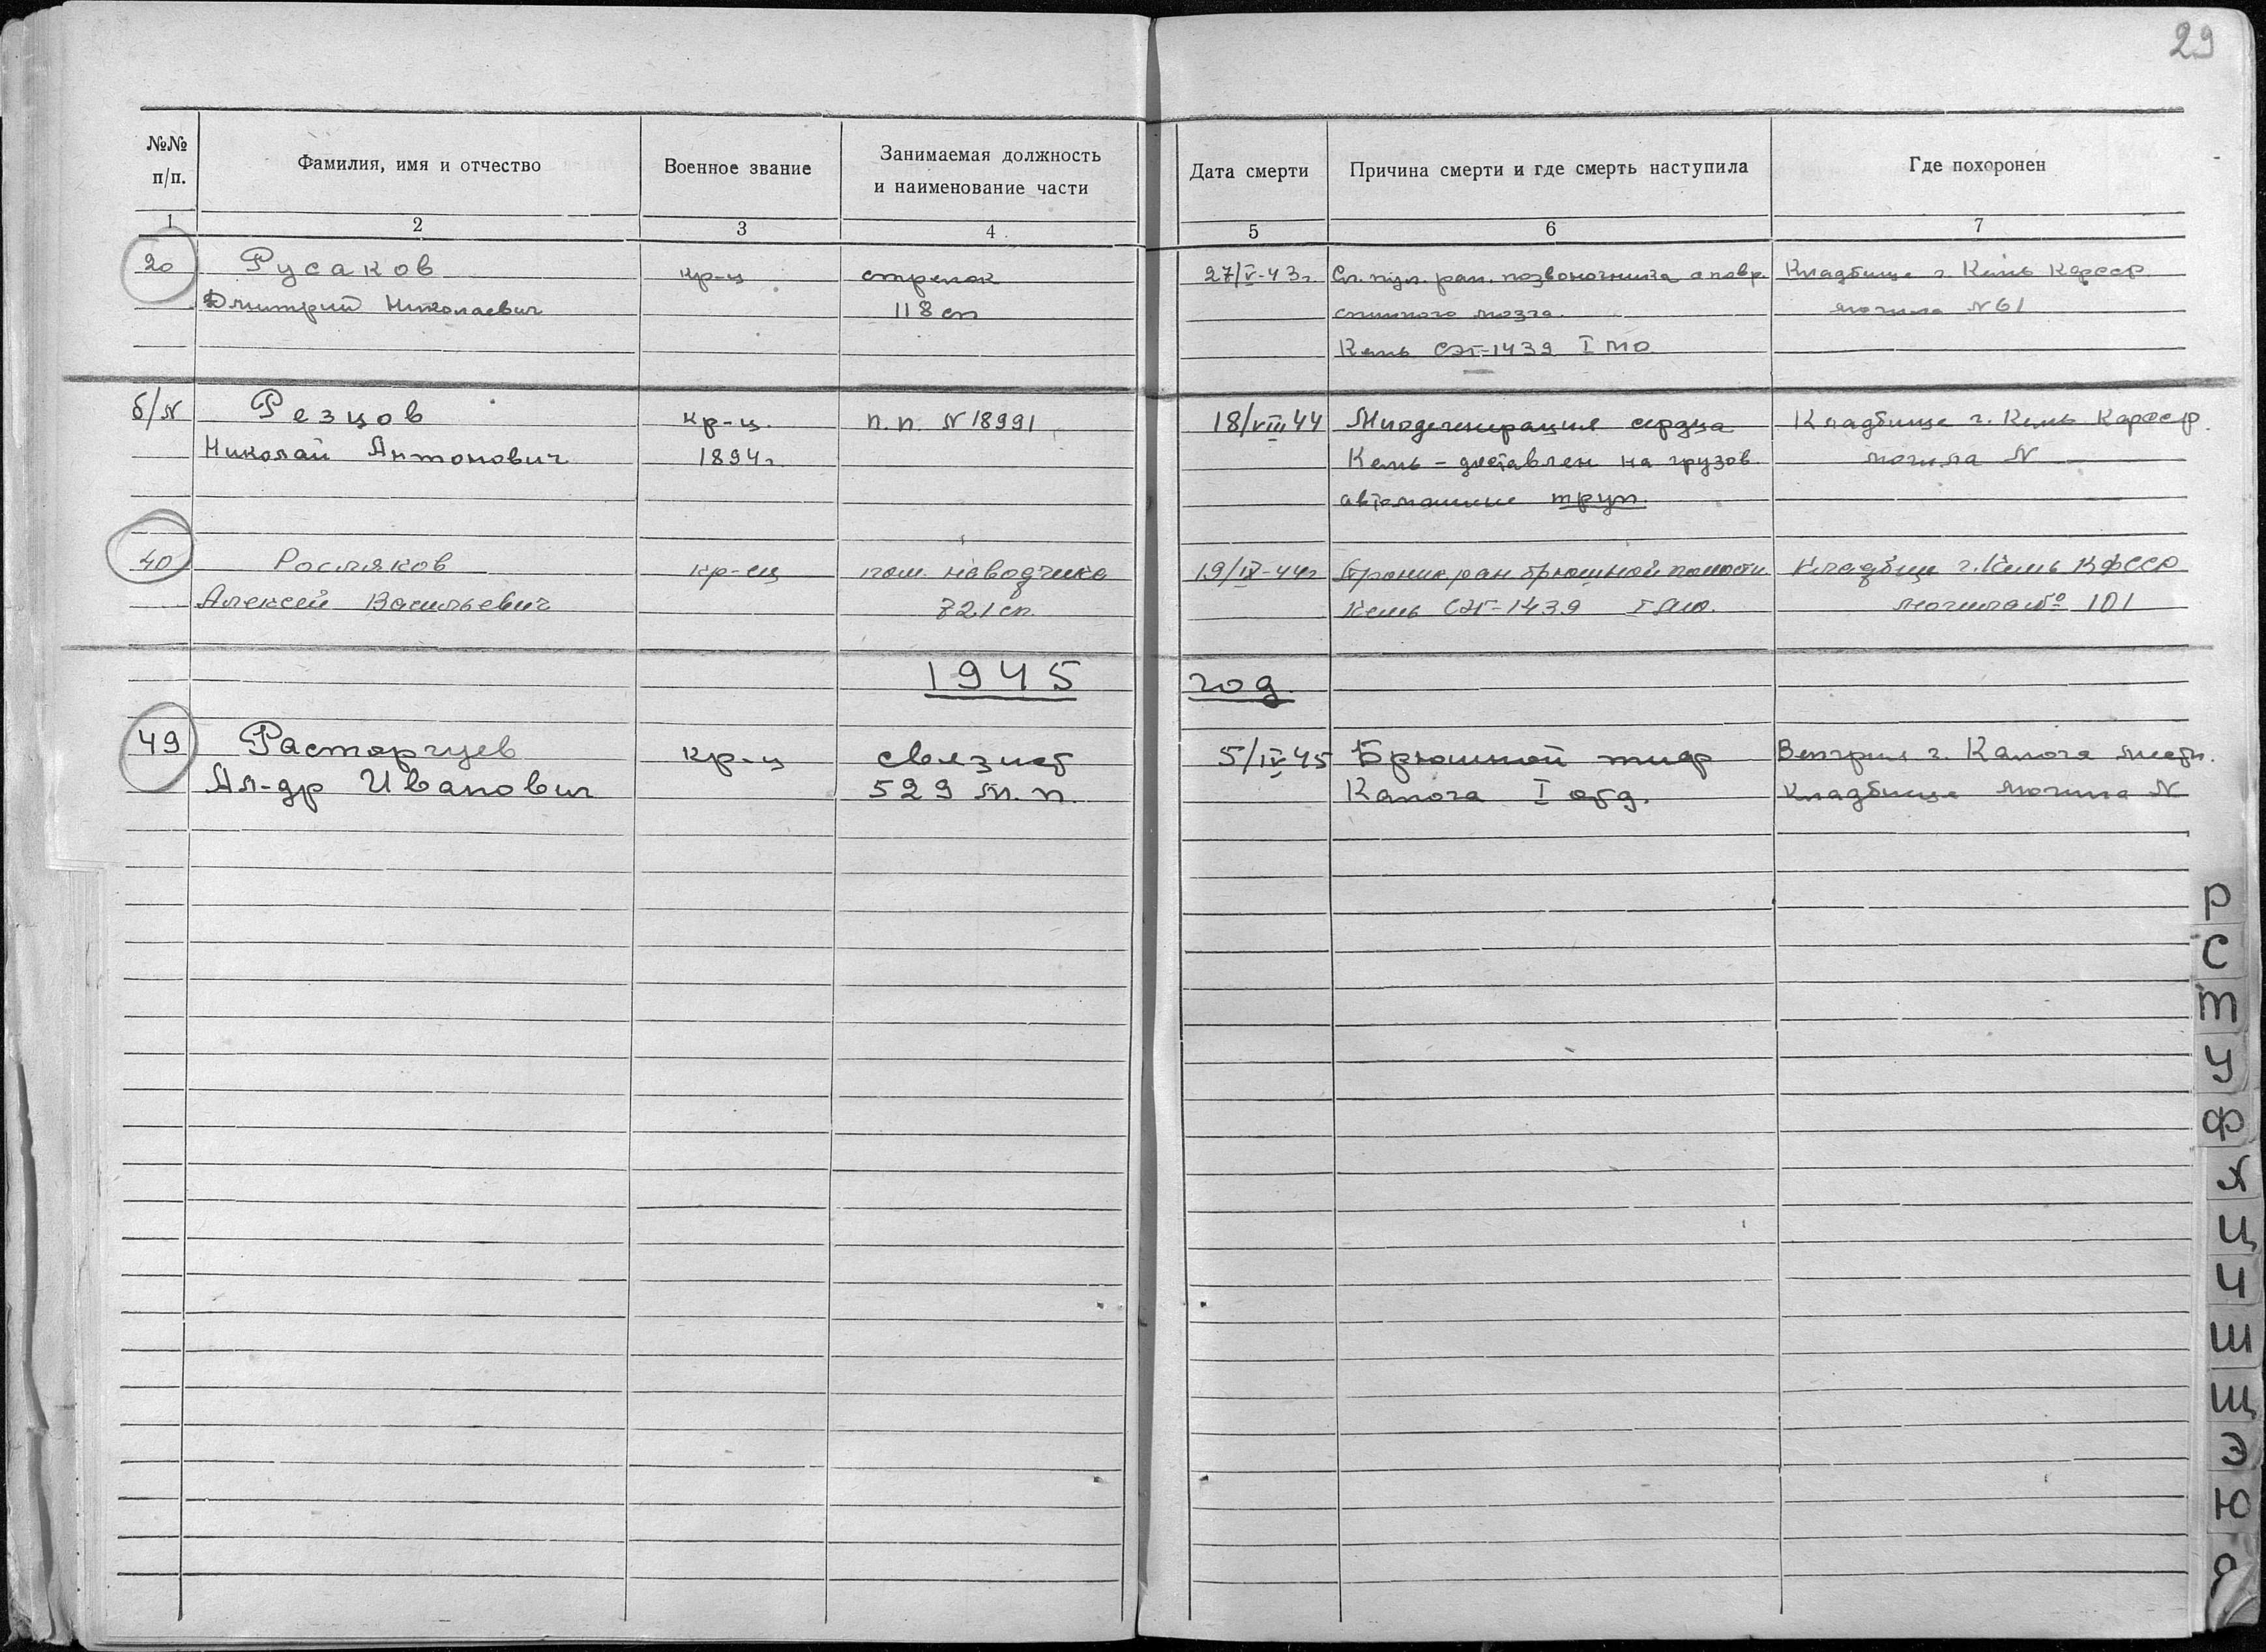 29
№№ п/п.
Фамилия, имя и отчество
Военное звание
Занимаемая должность
и наименование части
Дата смерти
Причина смерти и где смерть наступила
Где похоронен
1 2 3 4 5 6 7
20 Русаков кр-ц стрелок 27/V-43г. Сл. пул. ран. позвоночника с повр. Кладбище г. Кемь Карсср
Дмитрий Николаевич 118 сп спинного мозга. могила N 61
Кемь СЭГ-1439 I МО
б/N Резцов кр-ц. п.п. N 18991 18/VIII 44 Миодегенерация сердца Кладбище г. Кемь Карсср.
Николай Антонович 1894г. Кемь - доставлен на грузов. могила N
автомашине труп.
40 Росляков кр-ец пом. наводчика 19/IX-44г Проник ран брюшной полости Кладбище г. Кемь КФССР
Алексей Васильевич 721 сп. Кемь СЭГ-1439 I мо. могила № 101
1945 год
49 Расторгуев кр-ц связист 5/IV 45 Брюшной тиф Венгрия г. Калоча местн.
Ал-др Иванович 529 м.п. Калоча I отд. кладбище могила N
Р
С
Т
У
Ф
Х
Ц
Ч
Ш
Щ
Э
Ю
Я